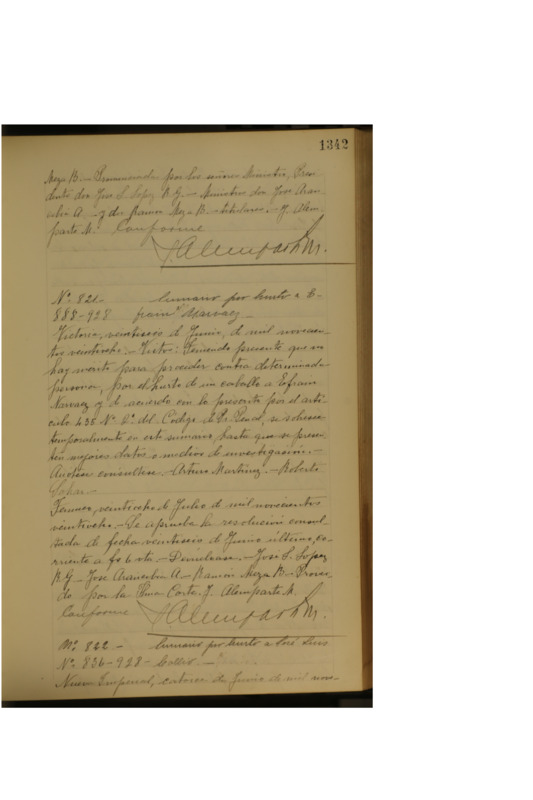 1342
Meza B.- Pronunciada por los señores Ministros, Presi-
dente don José S. Lopez R G - Ministros don Jose Aran-
cibia A - y don Ramon Meza B.- titulares.- J. Alem-
parte M. Conforme
J. Alemparte M.
Nº 821- Sumario por hurto a E-
888-928 frain Narvaez -
Victoria, veintiseis de Junio, de mil novecien-
tos veintiocho.- Vistos: Teniendo presente que no
hay merito para proceder contra determinada
persona, por el hurto de un caballo a Efrain
Narvaez y de acuerdo con lo prescrito por el arti-
culo 435 Nº 2º del Código de Pr Penal, se sobresee
temporalmente en este sumario, hasta que se presen-
ten mejores datos o medios de investigación.-
Anótese consultese.- Arturo Martinez.- Roberto
Temuco, veintiocho de Julio de mil novecientos
veintiocho.- Se aprueba la resolucion consul-
tada de fecha veintiseis de Junio último, es-
crita a fs 6 vta - Devuélvase.- José S. Lopez
R G - Jose Arancibia A - Ramon Meza B - Provei-
do por la Iltma Corte. J. Alemparte M.
Conforme J. Alemparte M.
Nº 822 - Sumario por hurto a José Luis
Nº 836-928-
Nueva Imperial, catorce de Junio de mil nove-